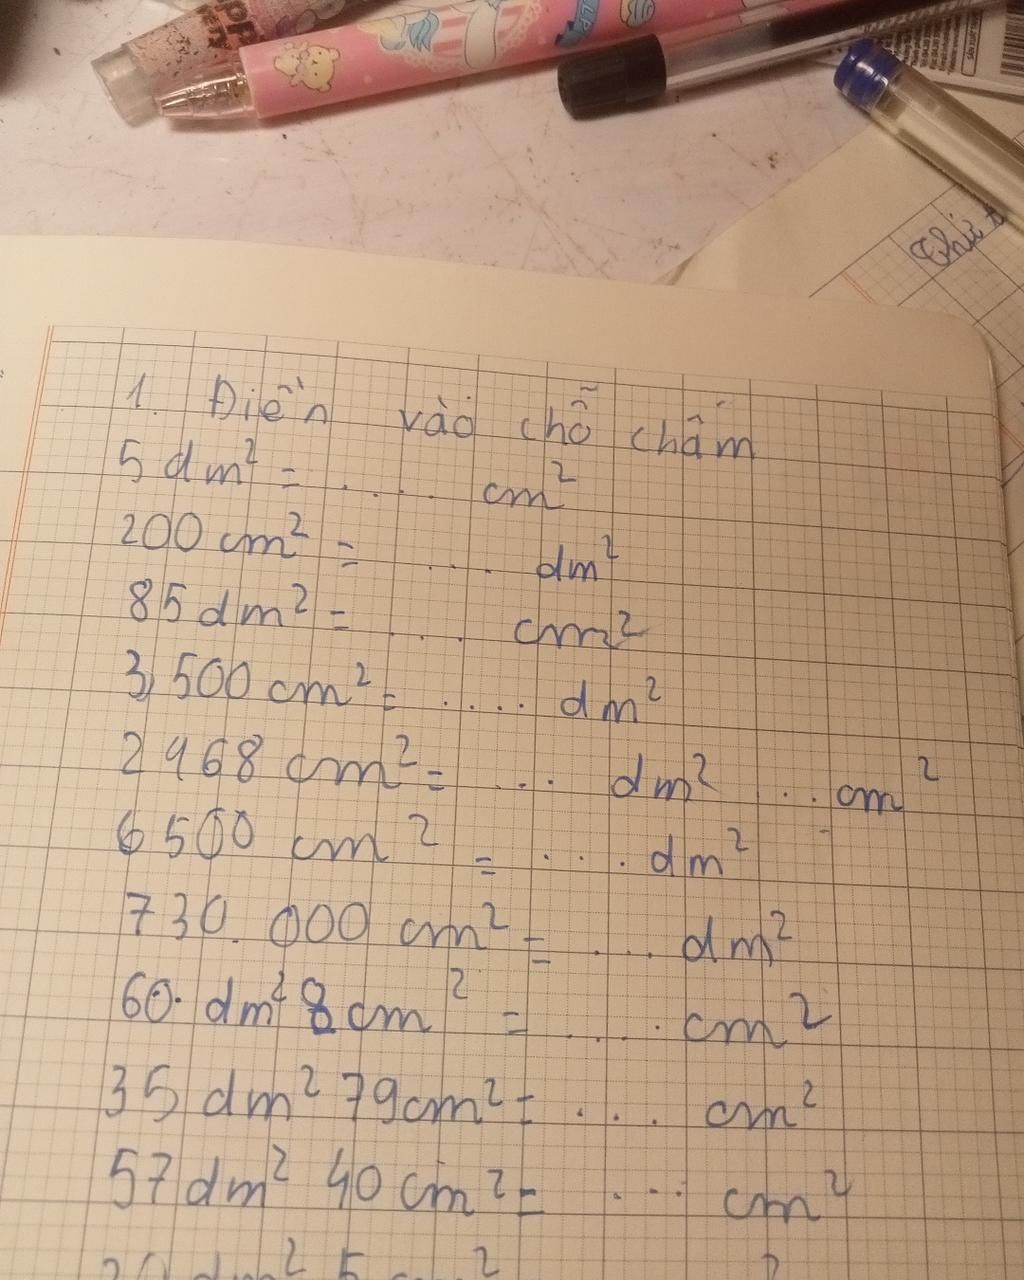 Thứ
1. Điền vào chỗ chấm
5 dm² = .... cm²
200 cm² = .... dm²
85 dm² = .... cm²
3,500 cm² = ..... dm²
2968 cm² = ... dm² ... cm²
6500 cm² = .... dm²
730.000 cm² = .... dm²
60. dm² 8 cm² = .... cm²
35 dm² 79 cm² = .... cm²
57 dm² 40 cm² = .... cm²